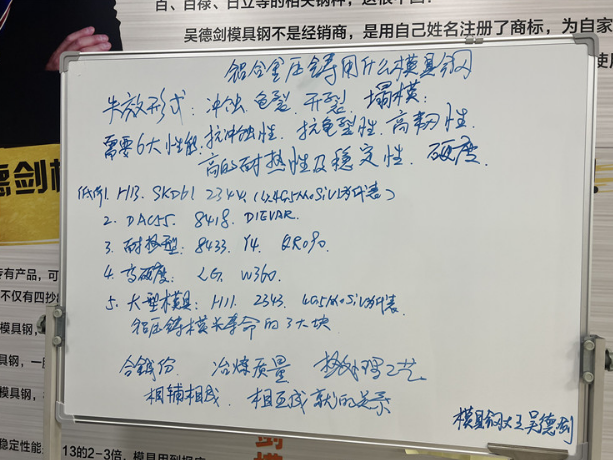 百、百禄、日立等的相关钢种，这很不
吴德剑模具钢不是经销商，是用自己姓名注册了商标，为自家
铝合金压铸用什么模具钢
失效形式：冲蚀、龟裂、开裂、塌模.
需要6大性能：抗冲蚀性、抗龟裂性、高韧性、
高的耐热性及稳定性、硬度、
1. H13. SKD61 2344.
2. DAC55. 8418. DIEVAR.
3. 耐热型：8433. Y4. QRO90.
4. 高硬度： LG. W360.
5. 大型模具：H11. 2343.
铝压铸模长寿命的3大块
合销份 冶炼质量 热处理工艺
相辅相成、相互成就的关系
模具钢大王吴德剑
德剑模
专有产品，可
不仅有四抄
模具钢，
稳定性能
13的2-3倍，模具用到